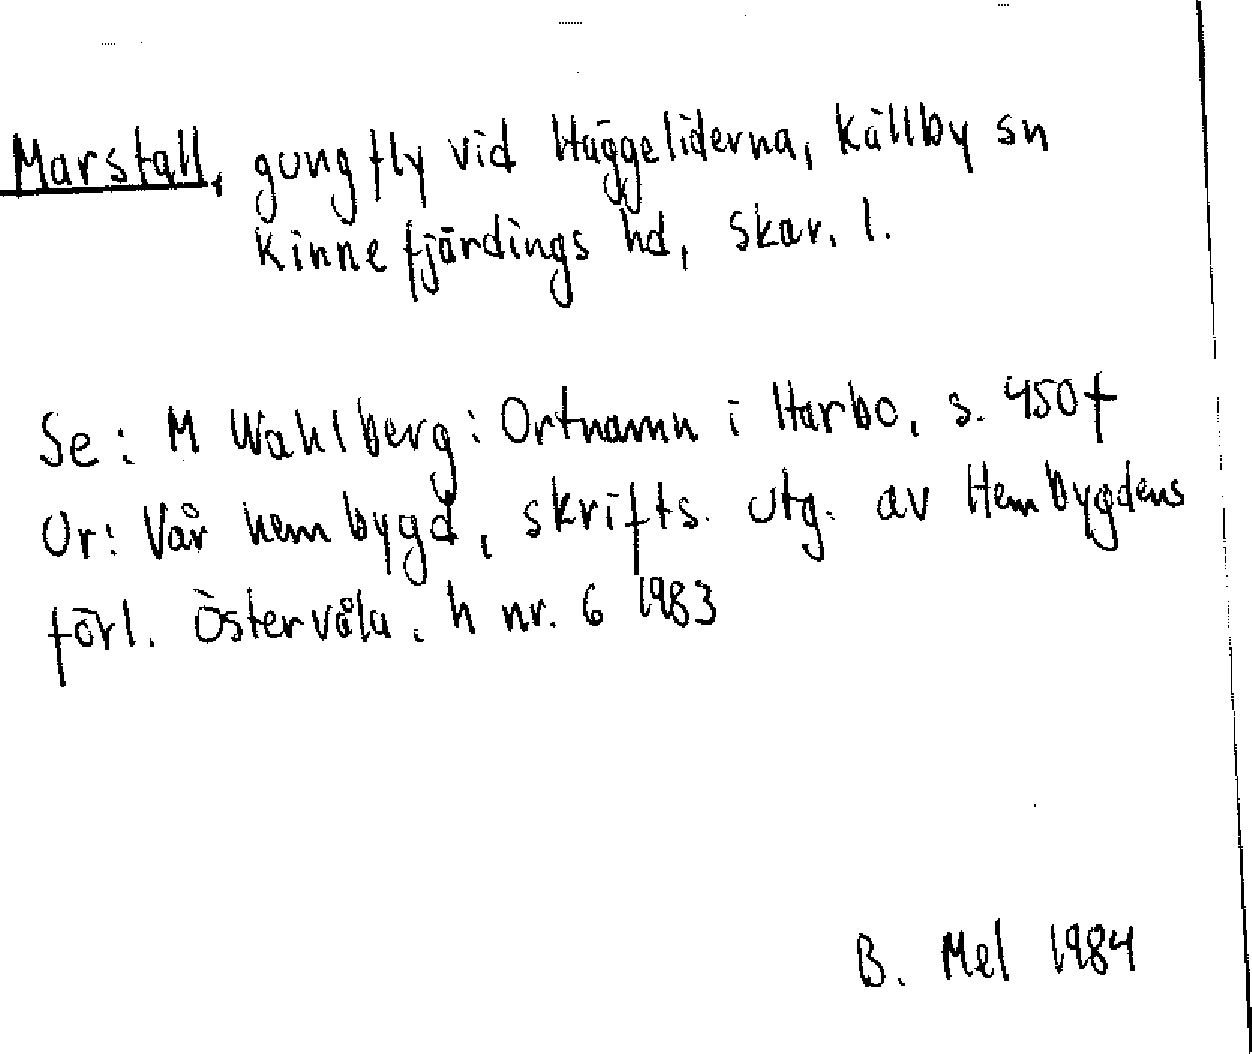 Marstall, gungfly vid Häggeliderna, Källby sn
Kinnefjärdings hd, Skar. l.
Se: M Wahlberg: Ortnamn i Harbo, s. 450f
Ur: Vår hembygd, skrifts. utg. av Hembygdens
förl. Östervåla. h nr. 6 1983
B. Mel 1984